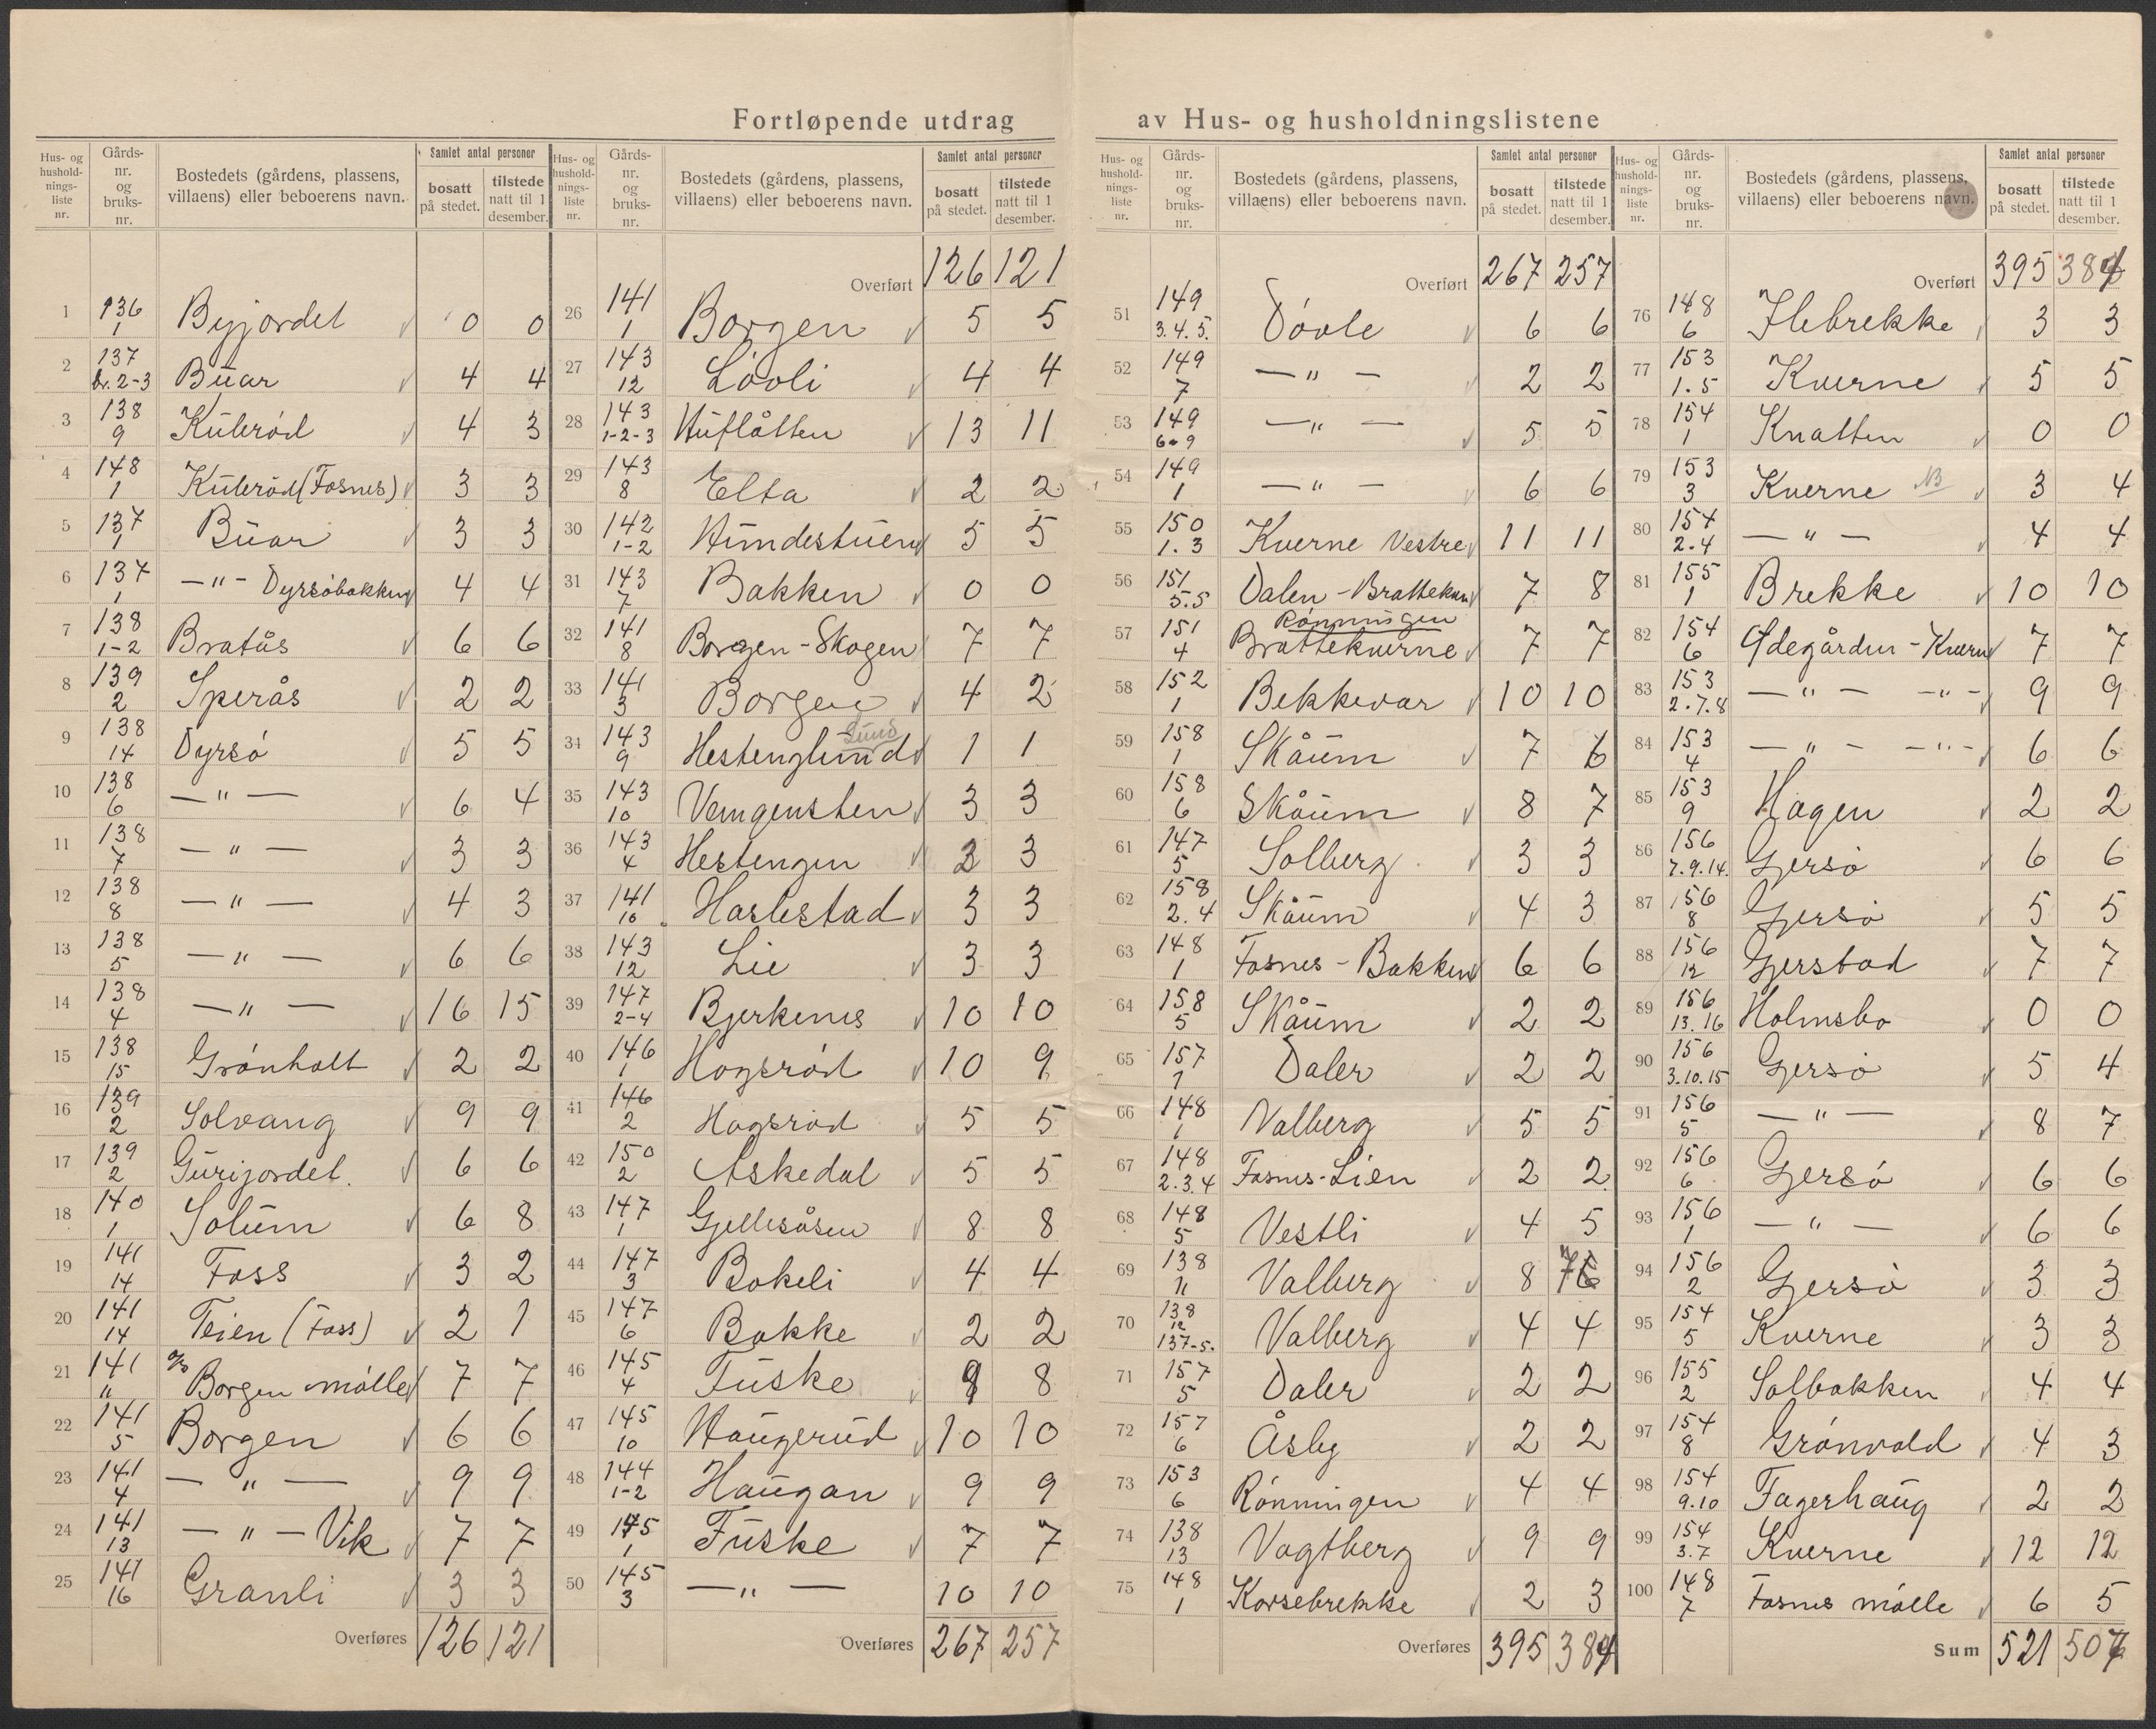 Fortløpende utdrag av Hus- og husholdningslistene
Hus- og husholdningsliste nr. | Gårdsnr. og bruksnr. | Bostedets (gårdens, plassens, villaens) eller beboerens navn. | Samlet antal personer bosatt på stedet. | tilstede natt til 1 desember.
1 136 1 Byjordet 0 0
2 137 br. 2-3 Buar 4 4
3 138 9 Kulerød 4 3
4 148 1 Kulerød (Fosnes) 3 3
5 137 1 Buar 3 3
6 137 1 —"— Dyrsøbakken 4 4
7 138 1-2 Bratås 6 6
8 139 2 Sperås 2 2
9 138 14 Dyrsø 5 5
10 138 6 —"— 6 4
11 138 7 —"— 3 3
12 138 8 —"— 4 3
13 138 5 —"— 6 6
14 138 4 —"— 16 15
15 138 15 Grønholt 2 2
16 139 2 Solvang 9 9
17 139 2 Gurijordet. 6 6
18 140 1 Solum 6 8
19 141 14 Foss 3 2
20 141 14 Teien (Foss) 2 1
21 141 " Borgen mølle 7 7
22 141 5 Borgen 6 6
23 141 4 —"— 9 9
24 141 13 —"— Vik 7 7
25 141 16 Granli 3 3
Overføres 126 121
Hus- og husholdningsliste nr. | Gårdsnr. og bruksnr. | Bostedets (gårdens, plassens, villaens) eller beboerens navn. | Samlet antal personer bosatt på stedet. | tilstede natt til 1 desember.
Overført 126 121
26 141 1 Borgen 5 5
27 143 12 Løvli 4 4
28 143 1-2-3 Huflåtten 13 11
29 143 8 Elta 2 2
30 142 1-2 Hundestuen 5 5
31 143 7 Bakken 0 0
32 141 8 Borgen-Skogen 7 7
33 141 3 Borgen 4 2
34 143 9 Hestenglund Sund 1 1
35 143 10 Vemgensten 3 3
36 143 4 Hestengen 3 3
37 141 10 Haslestad 3 3
38 143 12 Lie 3 3
39 147 2-4 Bjerkenes 10 10
40 146 1 Hogsrød 10 9
41 146 2 Hogsrød 5 5
42 150 2 Askedal 5 5
43 147 1 Gjellesåsen 8 8
44 147 3 Bokeli 4 4
45 147 6 Bakke 2 2
46 145 4 Fuske 9 8
47 145 10 Haugerud 10 10
48 144 1-2 Haugan 9 9
49 145 1 Fuske 7 7
50 145 3 —"— 10 10
Overføres 267 257
Hus- og husholdningsliste nr. | Gårdsnr. og bruksnr. | Bostedets (gårdens, plassens, villaens) eller beboerens navn. | Samlet antal personer bosatt på stedet. | tilstede natt til 1 desember.
Overført 267 257
51 149 3.4.5. Døvle 6 6
52 149 7 —"— 2 2
53 149 6-9 —"— 5 5
54 149 1 —"— 6 6
55 150 1.3 Kverne Vestre 11 11
56 151 5.5 Dalen-Brattekvern 7 8
57 151 4 Rønningen Brattekverne 7 7
58 152 1 Bekkevar 10 10
59 158 1 Skåum 7 6
60 158 6 Skåum 8 7
61 147 5 Solberg 3 3
62 158 2.4 Skåum 4 3
63 148 1 Fosnes-Bakken 6 6
64 158 5 Skåum 2 2
65 157 1 Daler 2 2
66 148 1 Valberg 5 5
67 148 2.3.4 Fosnes-Lien 2 2
68 148 5 Vestli 4 5
69 138 11 Valberg 8 76
70 138 12 137-5. Valberg 4 4
71 157 5 Daler 2 2
72 157 6 Åsly 2 2
73 153 6 Rønningen 4 4
74 138 13 Vagtberg 9 9
75 148 1 Korsebrekke 2 3
Overføres 395 384
Hus- og husholdningsliste nr. | Gårdsnr. og bruksnr. | Bostedets (gårdens, plassens, villaens) eller beboerens navn. | Samlet antal personer bosatt på stedet. | tilstede natt til 1 desember.
Overført 395 384
76 148 6 Ilebrekke 3 3
77 153 1.5 Kverne 5 5
78 154 1 Knatten 0 0
79 153 3 Kverne 3 4
80 154 2.4 —"— 4 4
81 155 1 Brekke 10 10
82 154 6 Ødegården-Kvern 7 7
83 153 2.7.8 —"— —"— 9 9
84 153 4 —"— —"— 6 6
85 153 9 Hagen 2 2
86 156 7.9.14. Gjersø 6 6
87 156 8 Gjersø 5 5
88 156 12 Gjerstad 7 7
89 156 13.16 Holmsbo 0 0
90 156 3.10.15 Gjersø 5 4
91 156 5 —"— 8 7
92 156 6 Gjersø 6 6
93 156 1 —"— 6 6
94 156 2 Gjersø 3 3
95 154 5 Kverne 3 3
96 155 2 Solbakken 4 4
97 154 8 Grønvold 4 3
98 154 9.10 Fagerhaug 2 2
99 154 3.7 Kverne 12 12
100 148 7 Fosnes mølle 6 5
Sum 521 507